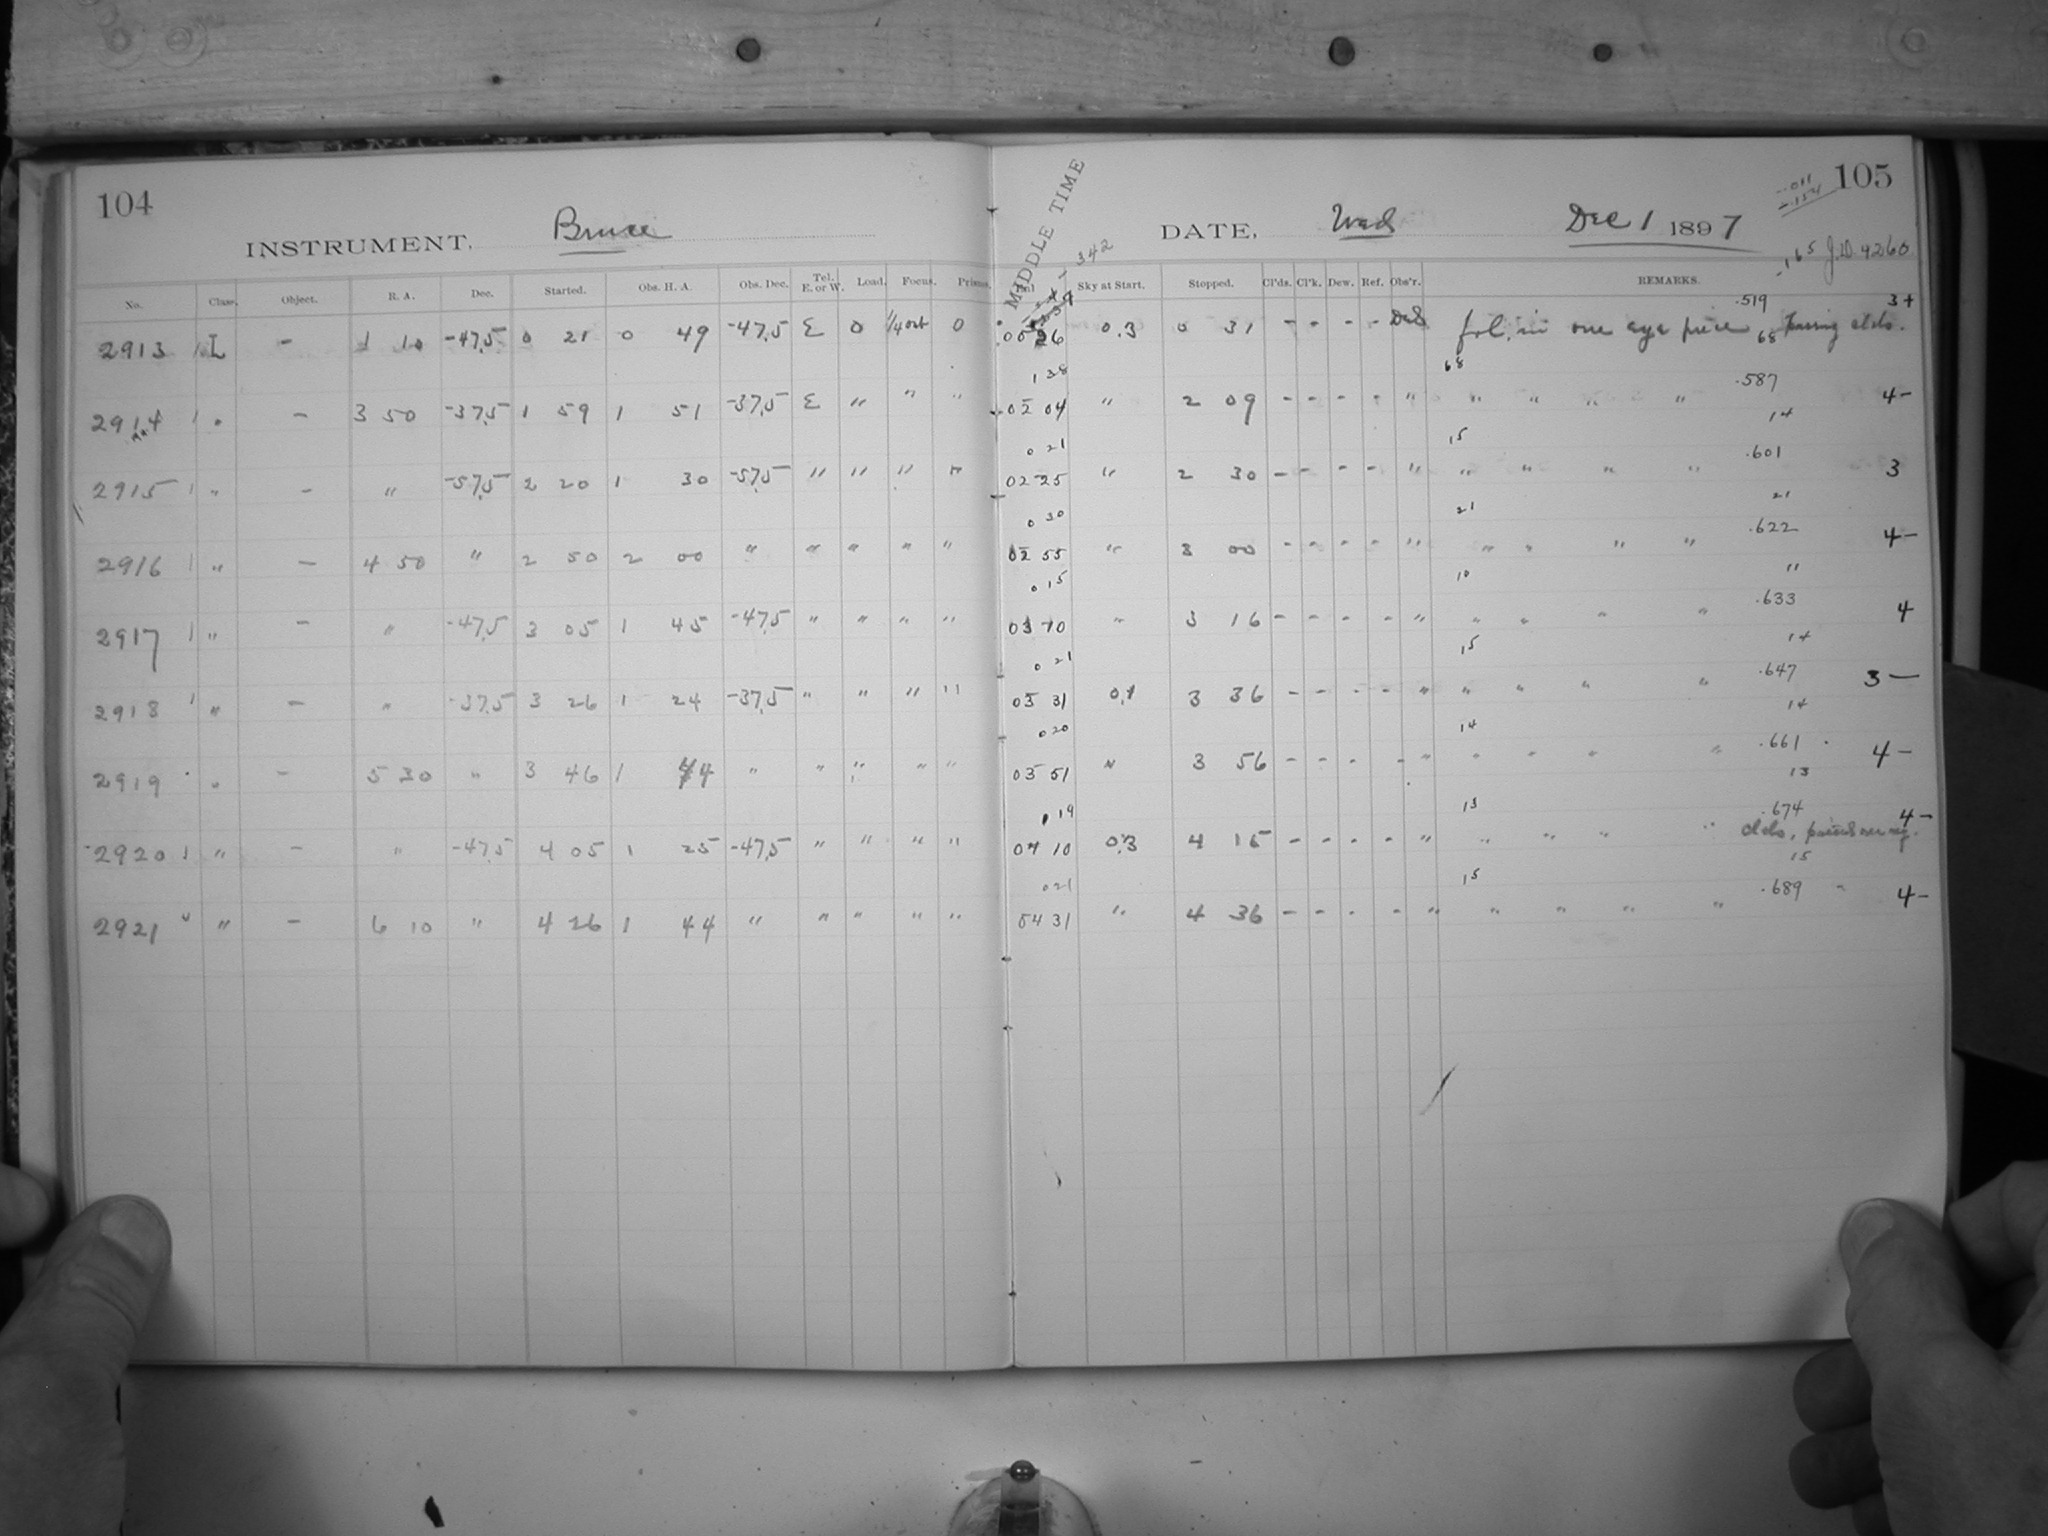 104
INSTRUMENT, Bruce
No. Class. Object. R. A. Dec. Started. Obs. H. A. Obs. Dec. Tel. E. or W. Load. Focus. Prisms.
2913 L - 1 10 -47.5 0 21 0 49 -47.5 E 0 1/4 out 0
2914 " - 3 50 -37.5 1 59 1 51 -37.5 E " " "
2915 " - " -57.5 2 20 1 30 -57.5 " " " "
2916 " - 4 50 " 2 50 2 00 " " " " "
2917 " - " -47.5 3 05 1 45 -47.5 " " " "
2918 " - " -37.5 3 26 1 24 -37.5 " " " "
2919 " - 5 30 " 3 46 1 44 " " " " "
2920 " - " -47.5 4 05 1 25 -47.5 " " " "
2921 " - 6 10 " 4 26 1 44 " " " " "
105
-.011
-.154
MIDDLE TIME
DATE, Wed Dec 1 1897
-.165 J.D. 4260
-342
Sky at Start. Stopped. Cl'ds. Cl'k. Dew. Ref. Obs'r. REMARKS.
.519 3+
00 26 0.3 0 31 - - - - fol. in one eye piece 68 Passing clds.
1 38 68 .587
02 04 " 2 09 - - - - " " " " " 14 4-
0 21 15 .601
02 25 " 2 30 - - - - " " " " " 3
0 30 21 21 .622
02 55 " 3 00 - - - - " " " " " 4-
0 15 10 11 .633
03 10 " 3 16 - - - - " " " " " 4
0 21 15 14 .647
03 31 0.1 3 36 - - - - " " " " " 3-
0 20 14 14 .661
03 51 " 3 56 - - - - " " " " " 4-
19 13 13 .674
04 10 0.3 4 15 - - - - " " " " " clds. 4-
0 21 15 15 .689
04 31 " 4 36 - - - - " " " " " 4-